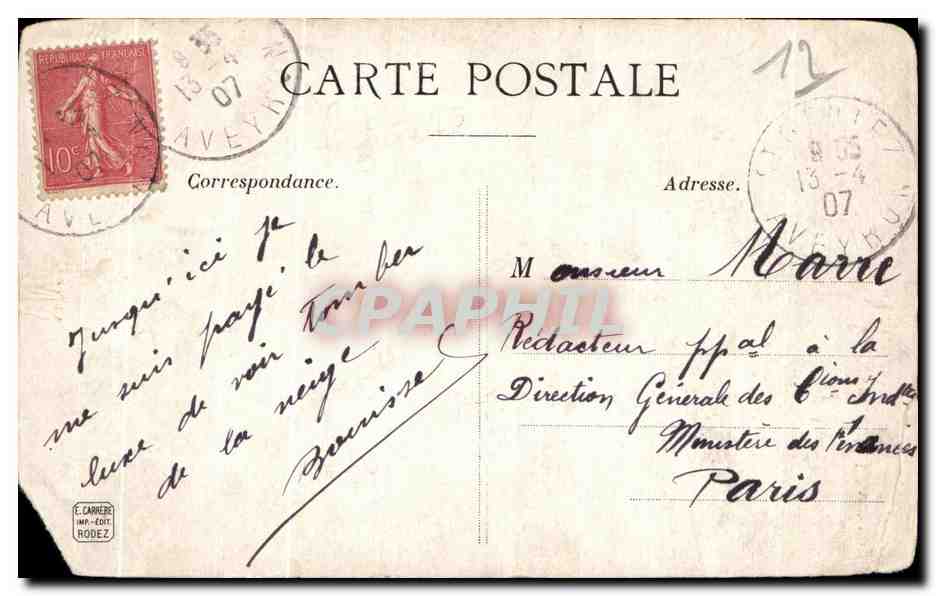 REPUBLIQUE FRANCAISE
10c
13 -4
07
AVEYRON
CARTE POSTALE
12
13 -4
07
AVEYRON
Correspondance.
Adresse.
Jusqu'ici je
me suis payé le
luxe de voir tomber
de la neige
Monsieur Marre
Rédacteur ppal à la
Direction Générale des Cions Indtes
Ministère des Finances
Paris
E. CARRÈRE
IMP.-ÉDIT.
RODEZ
CPAPHIL